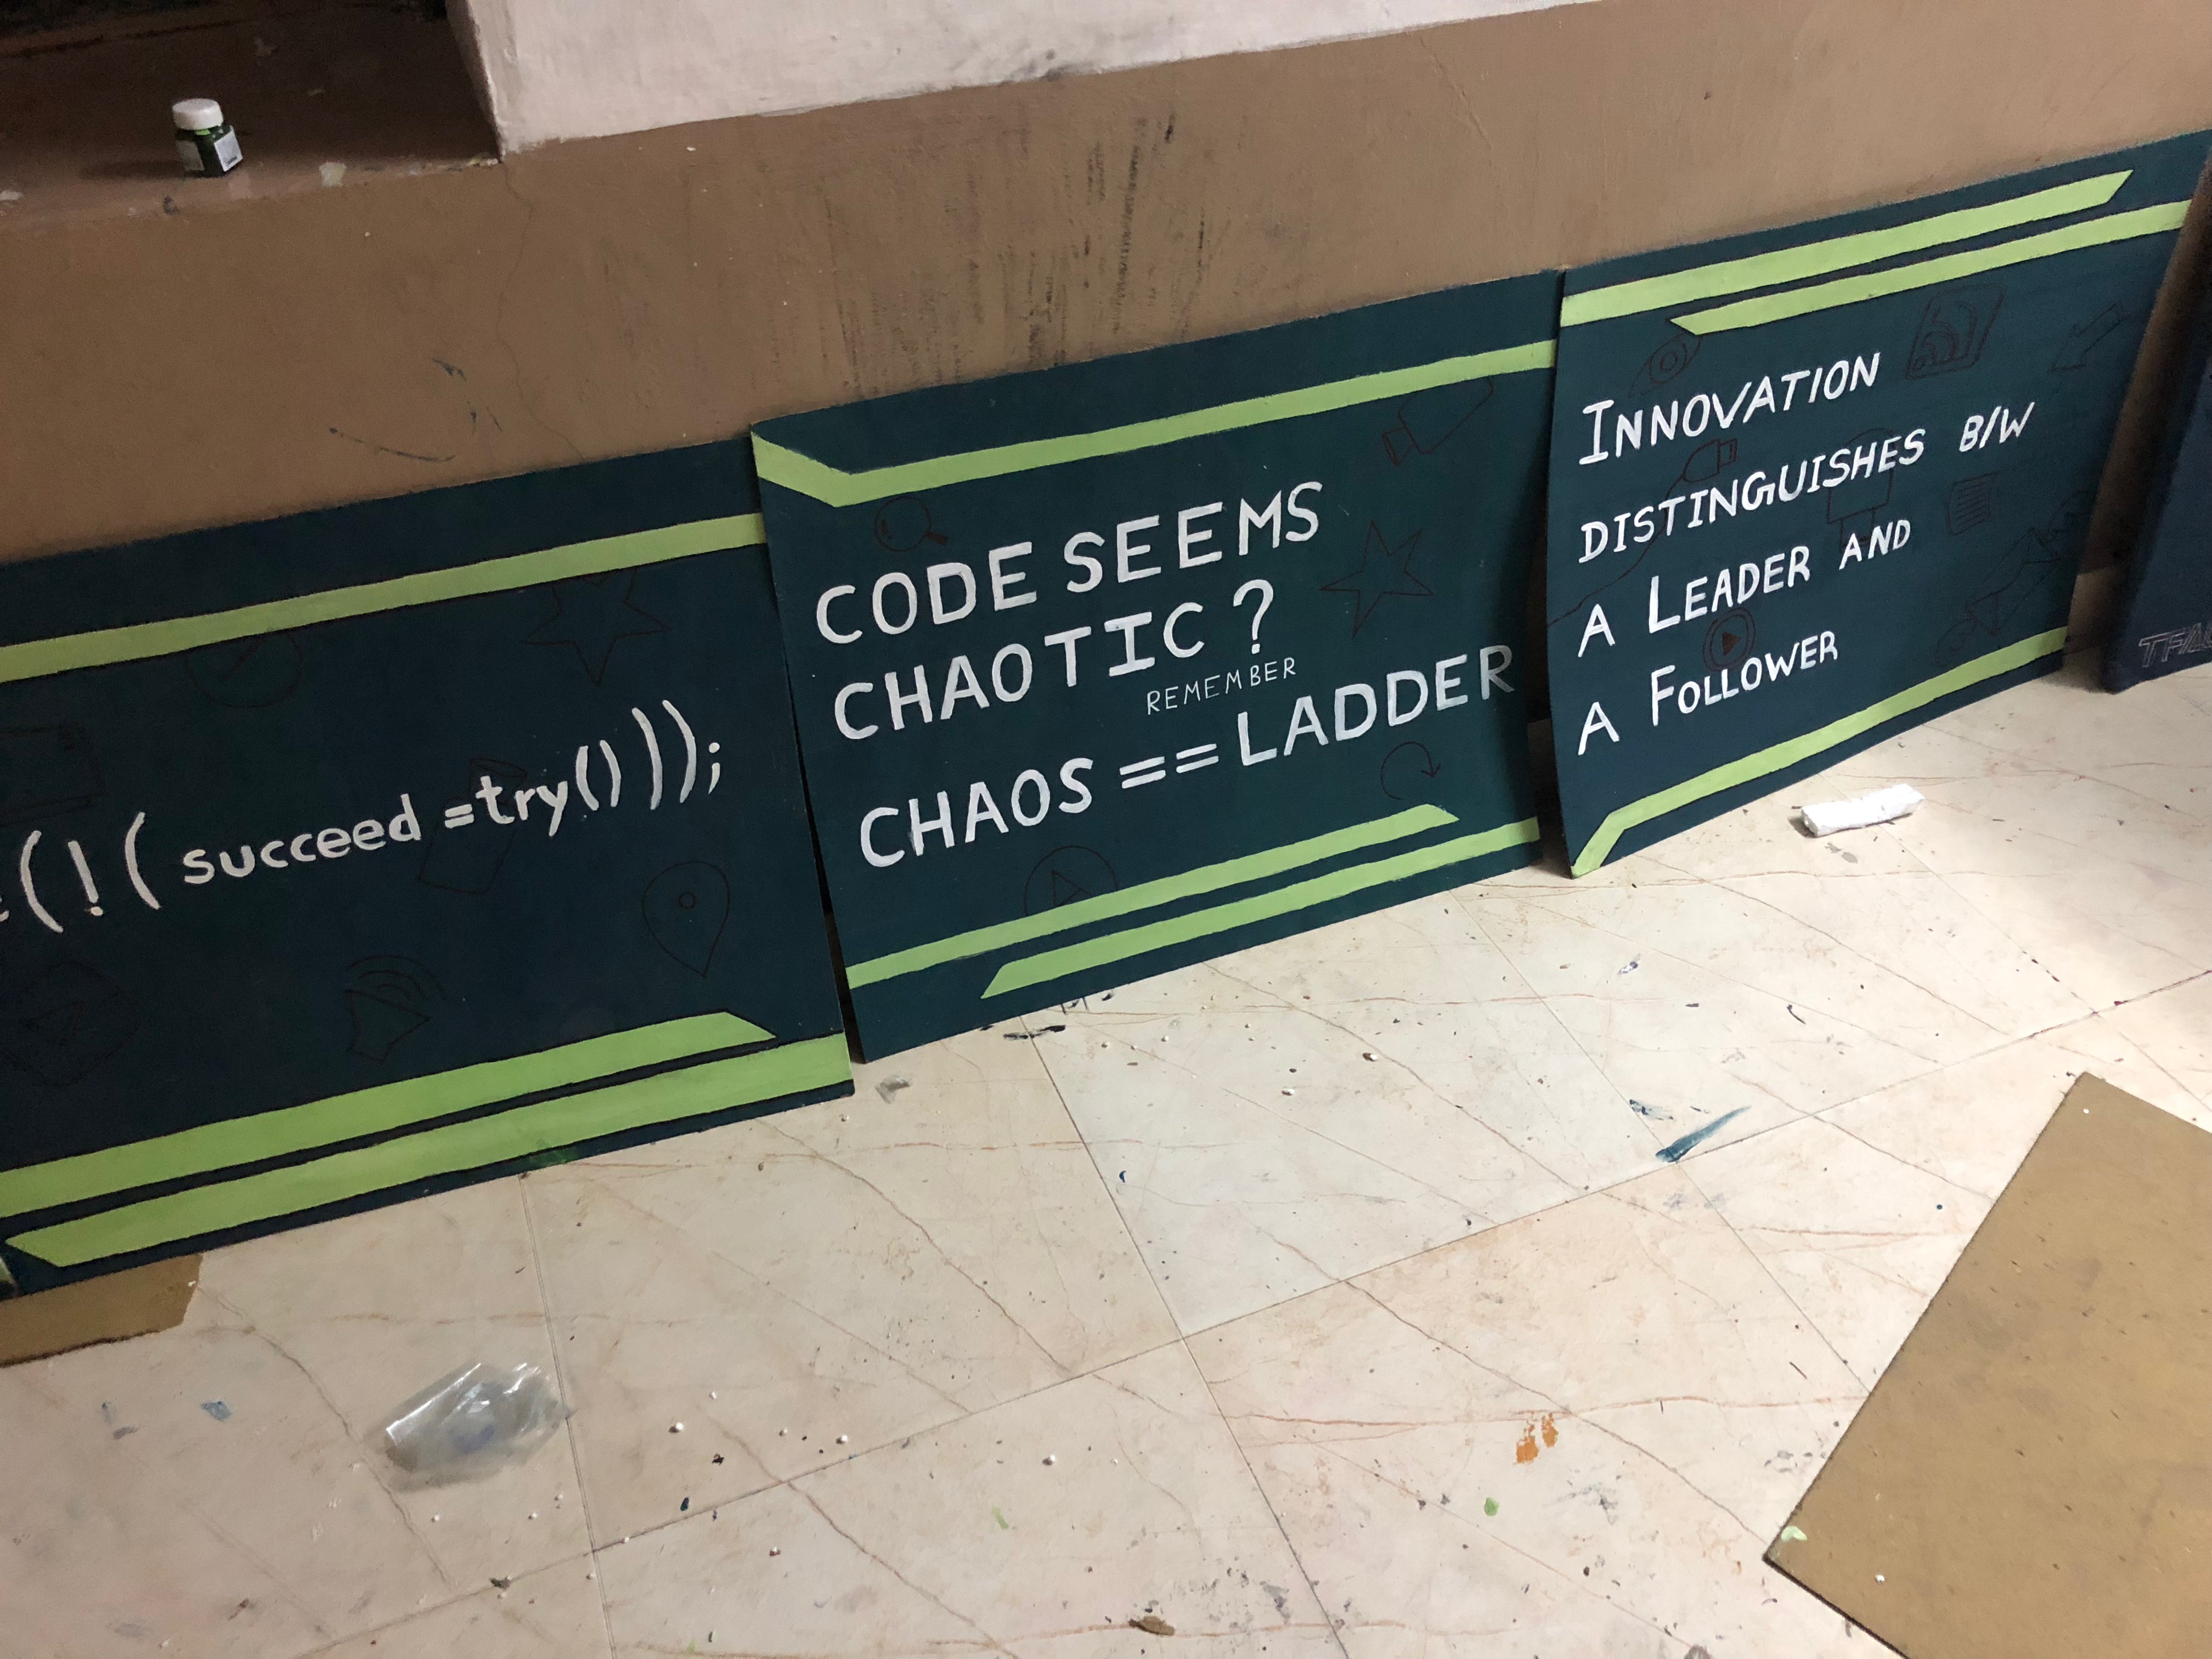 (!(succeed =try()));
CODE SEEMS
CHAOTIC ?
REMEMBER
CHAOS == LADDER
INNOVATION
DISTINGUISHES B/W
A LEADER AND
A FOLLOWER